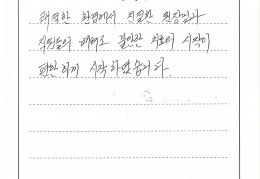 쾌적한 환경에서 친절한 원장님과
직원들의 배려로 불안한 치료의 시작이
편안하게 시작하였습니다.